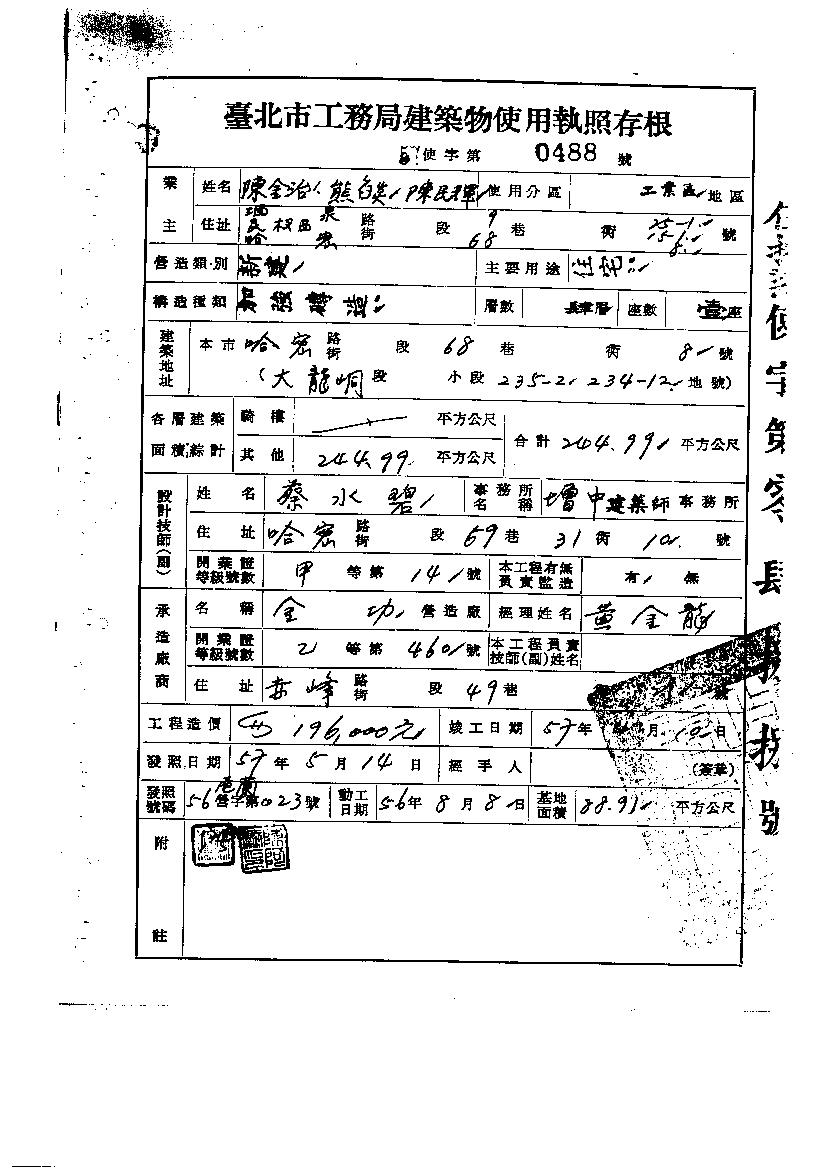 臺北市工務局建築物使用執照存根
57使字第 0488 號
業主 姓名 陳金治 熊 陳民 使用分區 工業區 地區
住址 路街 段 9 68 巷 衖 25-1 15-1 8 號
營造類別 新建 主要用途 住宅
構造種類 加強磚造 層數 層 座數 壹座
建築地址 本市 哈密 路街 段 68 巷 衖 8 號
(大龍峒段 小段 235-2 234-12 地號)
各層建築面積綜計 騎樓 平方公尺 合計 244.99 平方公尺
其他 244.99 平方公尺
設計技師(副) 姓名 蔡水碧 事務所名稱 增中建築師事務所
住址 哈密 路街 段 59 巷 31 衖 10 號
開業證等級號數 甲 等第 141 號 本工程有無負責監造 有 無
承造廠商 名稱 金功 營造廠 經理姓名 黃金龍
開業證等級號數 乙 等第 460 號 本工程負責技師(副)姓名
住址 赤峰 路街 段 49 巷 號
工程造價 196,000元 竣工日期 57年 月 10日
發照日期 57年5月14日 經手人 (簽章)
發照號碼 56 營字第023號 動工日期 56年8月8日 基地面積 88.91 平方公尺
附註
使字第零
號